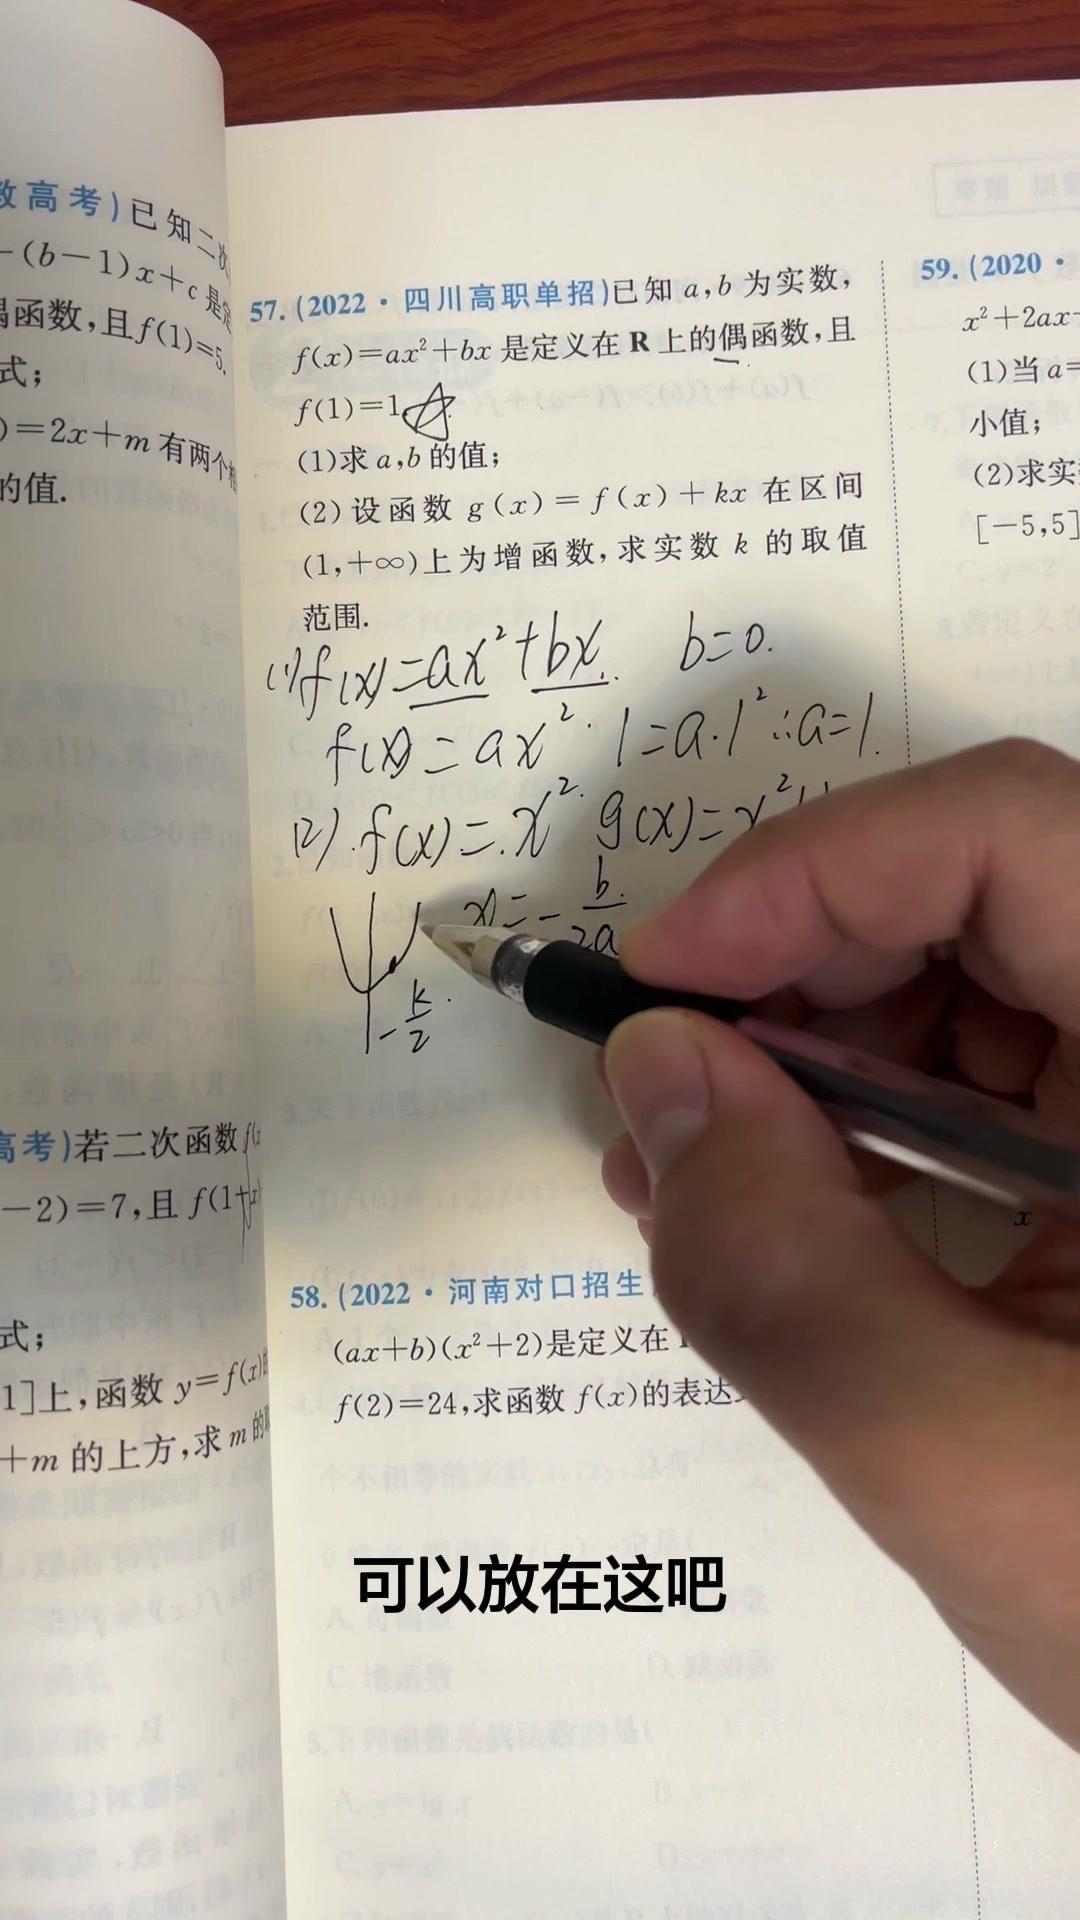 数高考)已知二次
-(b-1)x+c是定
偶函数,且f(1)=5.
式;
)=2x+m有两个相
的值.
高考)若二次函数f(x
-2)=7,且f(1+x)
式;
1]上,函数y=f(x)的
+m的上方,求m的取
57.(2022·四川高职单招)已知a,b为实数,
f(x)=ax²+bx是定义在R上的偶函数,且
f(1)=1.
(1)求a,b的值;
(2)设函数g(x)=f(x)+kx在区间
(1,+∞)上为增函数,求实数k的取值
范围.
(1)f(x)=ax²+bx. b=0.
f(x)=ax². 1=a·1² ∴a=1.
(2).f(x)=x². g(x)=x²+
x=-b/2a
-k/2.
58.(2022·河南对口招生
(ax+b)(x²+2)是定义在
f(2)=24,求函数f(x)的表达式
59.(2020·
x²+2ax-
(1)当a=
小值;
(2)求实
[-5,5]
x
可以放在这吧